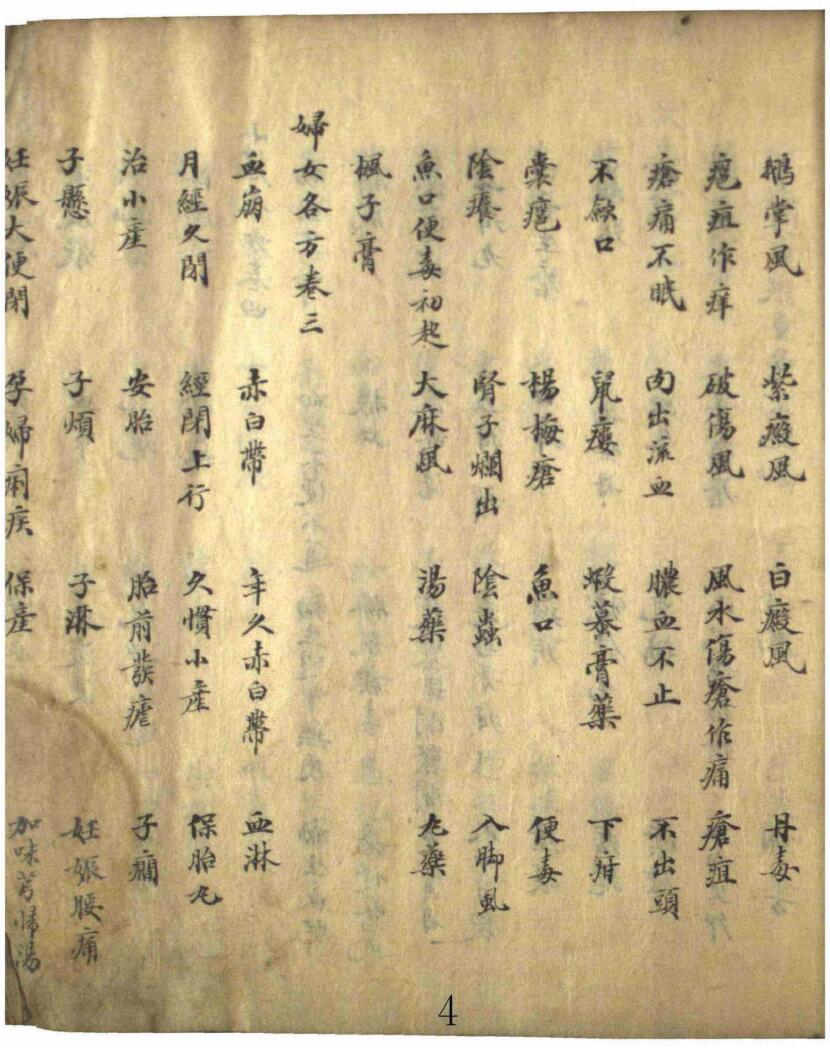 鵝掌風 紫癜風 白癜風 丹毒
疤疽作痒 破傷風 風水傷瘡作痛 瘡疽
瘡痛不眠 肉出流血 膿血不止 不出頭
不斂口 鼠瘻 蝦蟇膏藥 下疳
囊疤 楊梅瘡 魚口 便毒
陰癢 腎子爛出 陰蟲 入脚風
魚口便毒初起 大麻風 湯藥 丸藥
楓子膏
婦女各方卷三
血崩 赤白帶 年久赤白帶 血淋
月經久閉 經閉上行 久慣小產 保胎丸
治小產 安胎 胎前發瘧 子癇
子懸 子煩 子淋 妊娠腰痛
妊娠大便閉 孕婦痢疾 保產 加味芎歸湯
4